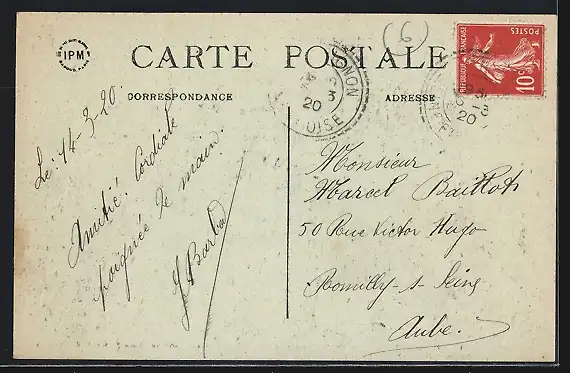 IPM
(6)
CARTE POSTALE
CORRESPONDANCE
ADRESSE
REPUBLIQUE FRANÇAISE
POSTES
10c
NON
3
20
OISE
20
Le: 14-3-20.
Amitié. Cordiale
poignée de main.
J Barbé
Monsieur
Marcel Baillot
50 Rue Victor Hugo
Romilly-s-Seine
Aube.